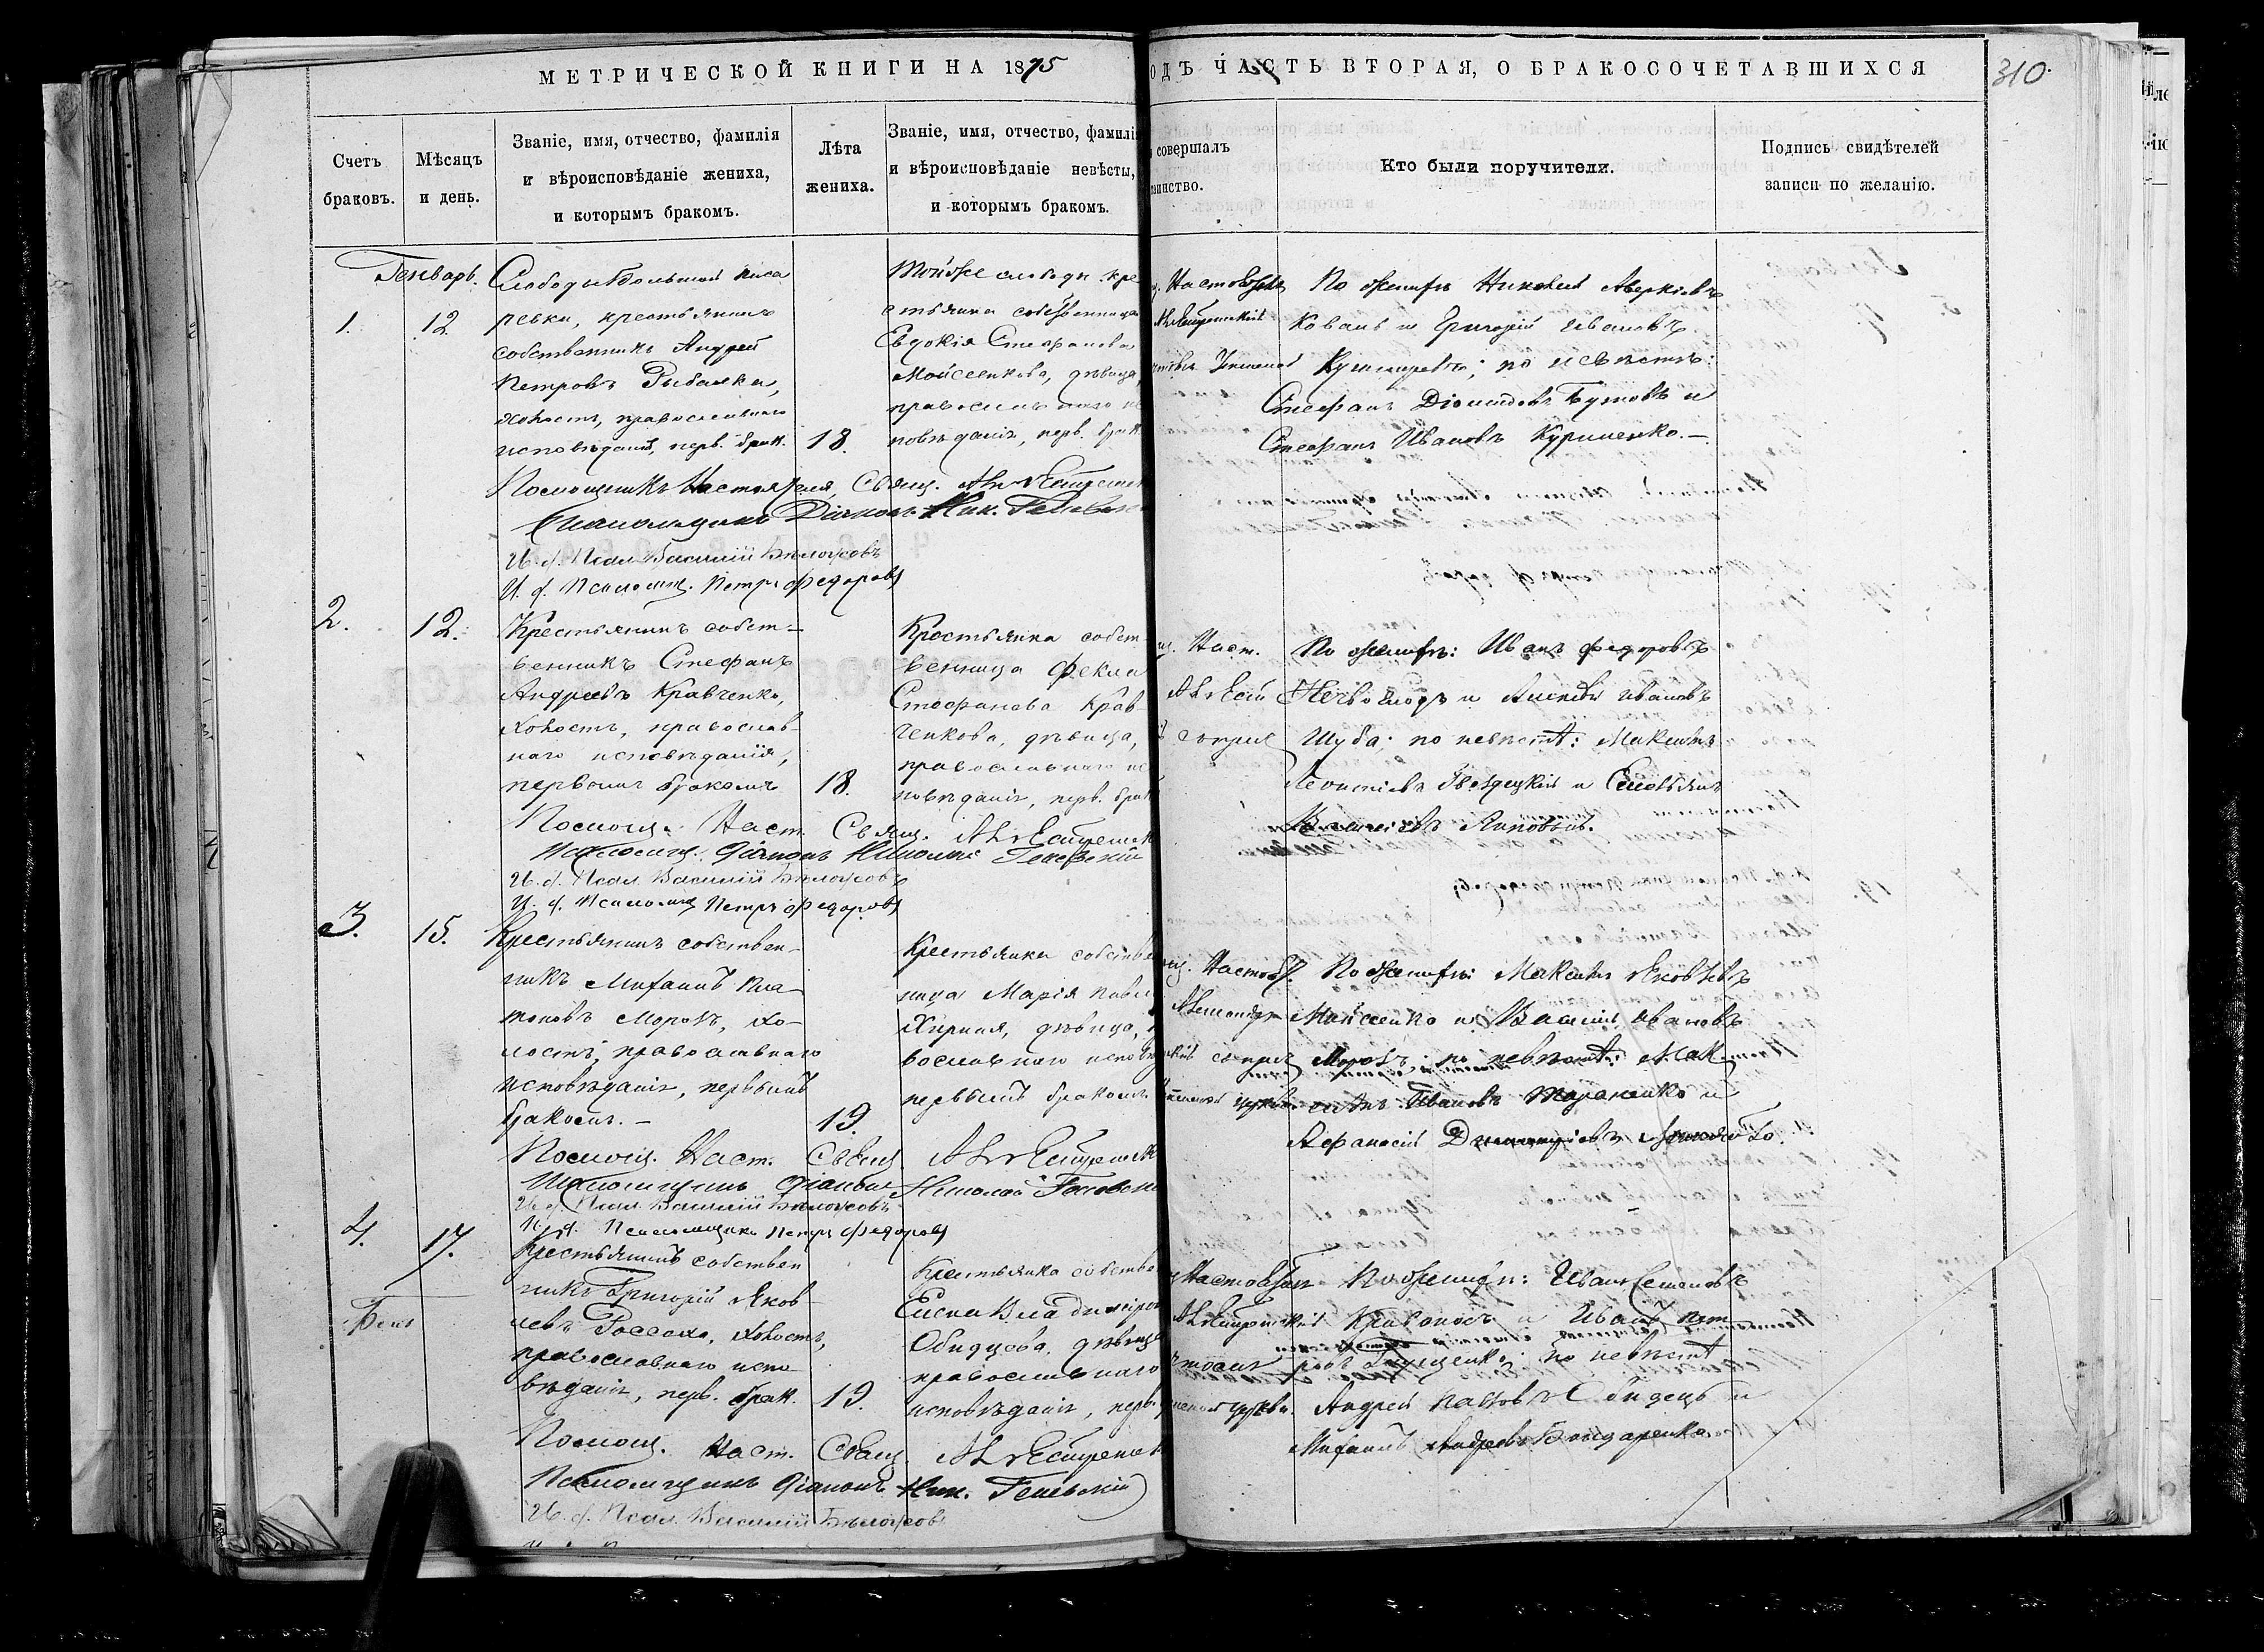 МЕТРИЧЕСКОЙ КНИГИ НА 1875
ОДЪ ЧАСТЬ ВТОРАЯ, О БРАКОСОЧЕТАВШИХСЯ
310.
Счетъ
браковъ.
Мѣсяцъ
и день.
Званіе, имя, отчество, фамилія
и вѣроисповѣданіе жениха,
и которымъ бракомъ.
Лѣта
жениха.
Званіе, имя, отчество, фамилія
и вѣроисповѣданіе невѣсты,
и которымъ бракомъ.
совершалъ
таинство.
Кто были поручители.
Подпись свидѣтелей
записи по желанію.
Генварь.
1.
12
Слободы Большой Писа
ревки, крестьянинъ
собственникъ Андрей
Петровъ Рыбалка,
холостъ, православнаго
исповѣданія, перв. брак.
18.
Тойже слободы кре
стьянка собственница
Евдокія Стефанова
Мойсеенкова, дѣвица,
православнаго ис
повѣданія, перв. брак.
По женихѣ Николай Аверкіевъ
Коваль и Григорій Ивановъ
по невѣстѣ:
Стефанъ Діомидовъ Бутовъ и
Стефанъ Ивановъ Куриленко.—
Помощникъ Настоятеля, Свящ.
Псаломщикъ Діаконъ Ник.
И. д. Псал. Василій Бѣлоусовъ
И. д. Псаломщ. Петръ Федоровъ
2.
12.
Крестьянинъ собст-
венникъ Стефанъ
Андреевъ Кравченко,
холостъ, православ-
наго исповѣданія,
первымъ бракомъ
18.
Крестьянка собст
венница Фекла
Стефанова Крав
ченкова, дѣвица,
православнаго ис
повѣданія, перв. брак
Наст.
По женихѣ: Иванъ Федоровъ
и Алексѣй Ивановъ
Шуба; по невѣстѣ: Максимъ
Леонтіевъ Гвоздецкій и Емельянъ
Василіевъ
Помощ. Наст. Свящ.
Псаломщ. Діаконъ Николай
И. д. Псал. Василій Бѣлоусовъ
И. д. Псаломщ Петръ Федоровъ
3.
15.
Крестьянинъ собствен-
никъ Митаилъ Пла-
тоновъ Морозъ, хо-
лостъ, православнаго
исповѣданія, первымъ
бракомъ.—
19.
Крестьянка собстве
ница Марія Павл
Хирная, дѣвица,
вославнаго исповѣ
первымъ бракомъ
По женихѣ: Максимъ Яковлевъ
Мойсеенко и Василій Ивановъ
Морозъ; по невѣстѣ: Мак
симъ Ивановъ Тараненко и
Афанасій Димитріевъ
Помощ. Наст. Свящ.
Псаломщикъ Діаконъ Николай
И. д. Псал. Василій Бѣлоусовъ
И. д. Псаломщикъ Петръ Федоровъ
4.
17.
Крестьянинъ собствен
никъ Григорій Яков
левъ Россоха, холостъ,
православнаго испо
вѣданія, перв. брак.
19.
Крестьянка собстве
Елена Владиміров
Обидцова, дѣвица
православнаго
исповѣданія, перв.
церкви.
По женихѣ: Иванъ Семеновъ
Кривоносъ и Иванъ Пет
ровъ по невѣстѣ
Андрей Павловъ Обидецъ и
Михаилъ Андреевъ Бондаренко.
Помощ. Наст. Свящ.
Псаломщикъ Діаконъ Ник.
И. д. Псал. Василій Бѣлоусовъ